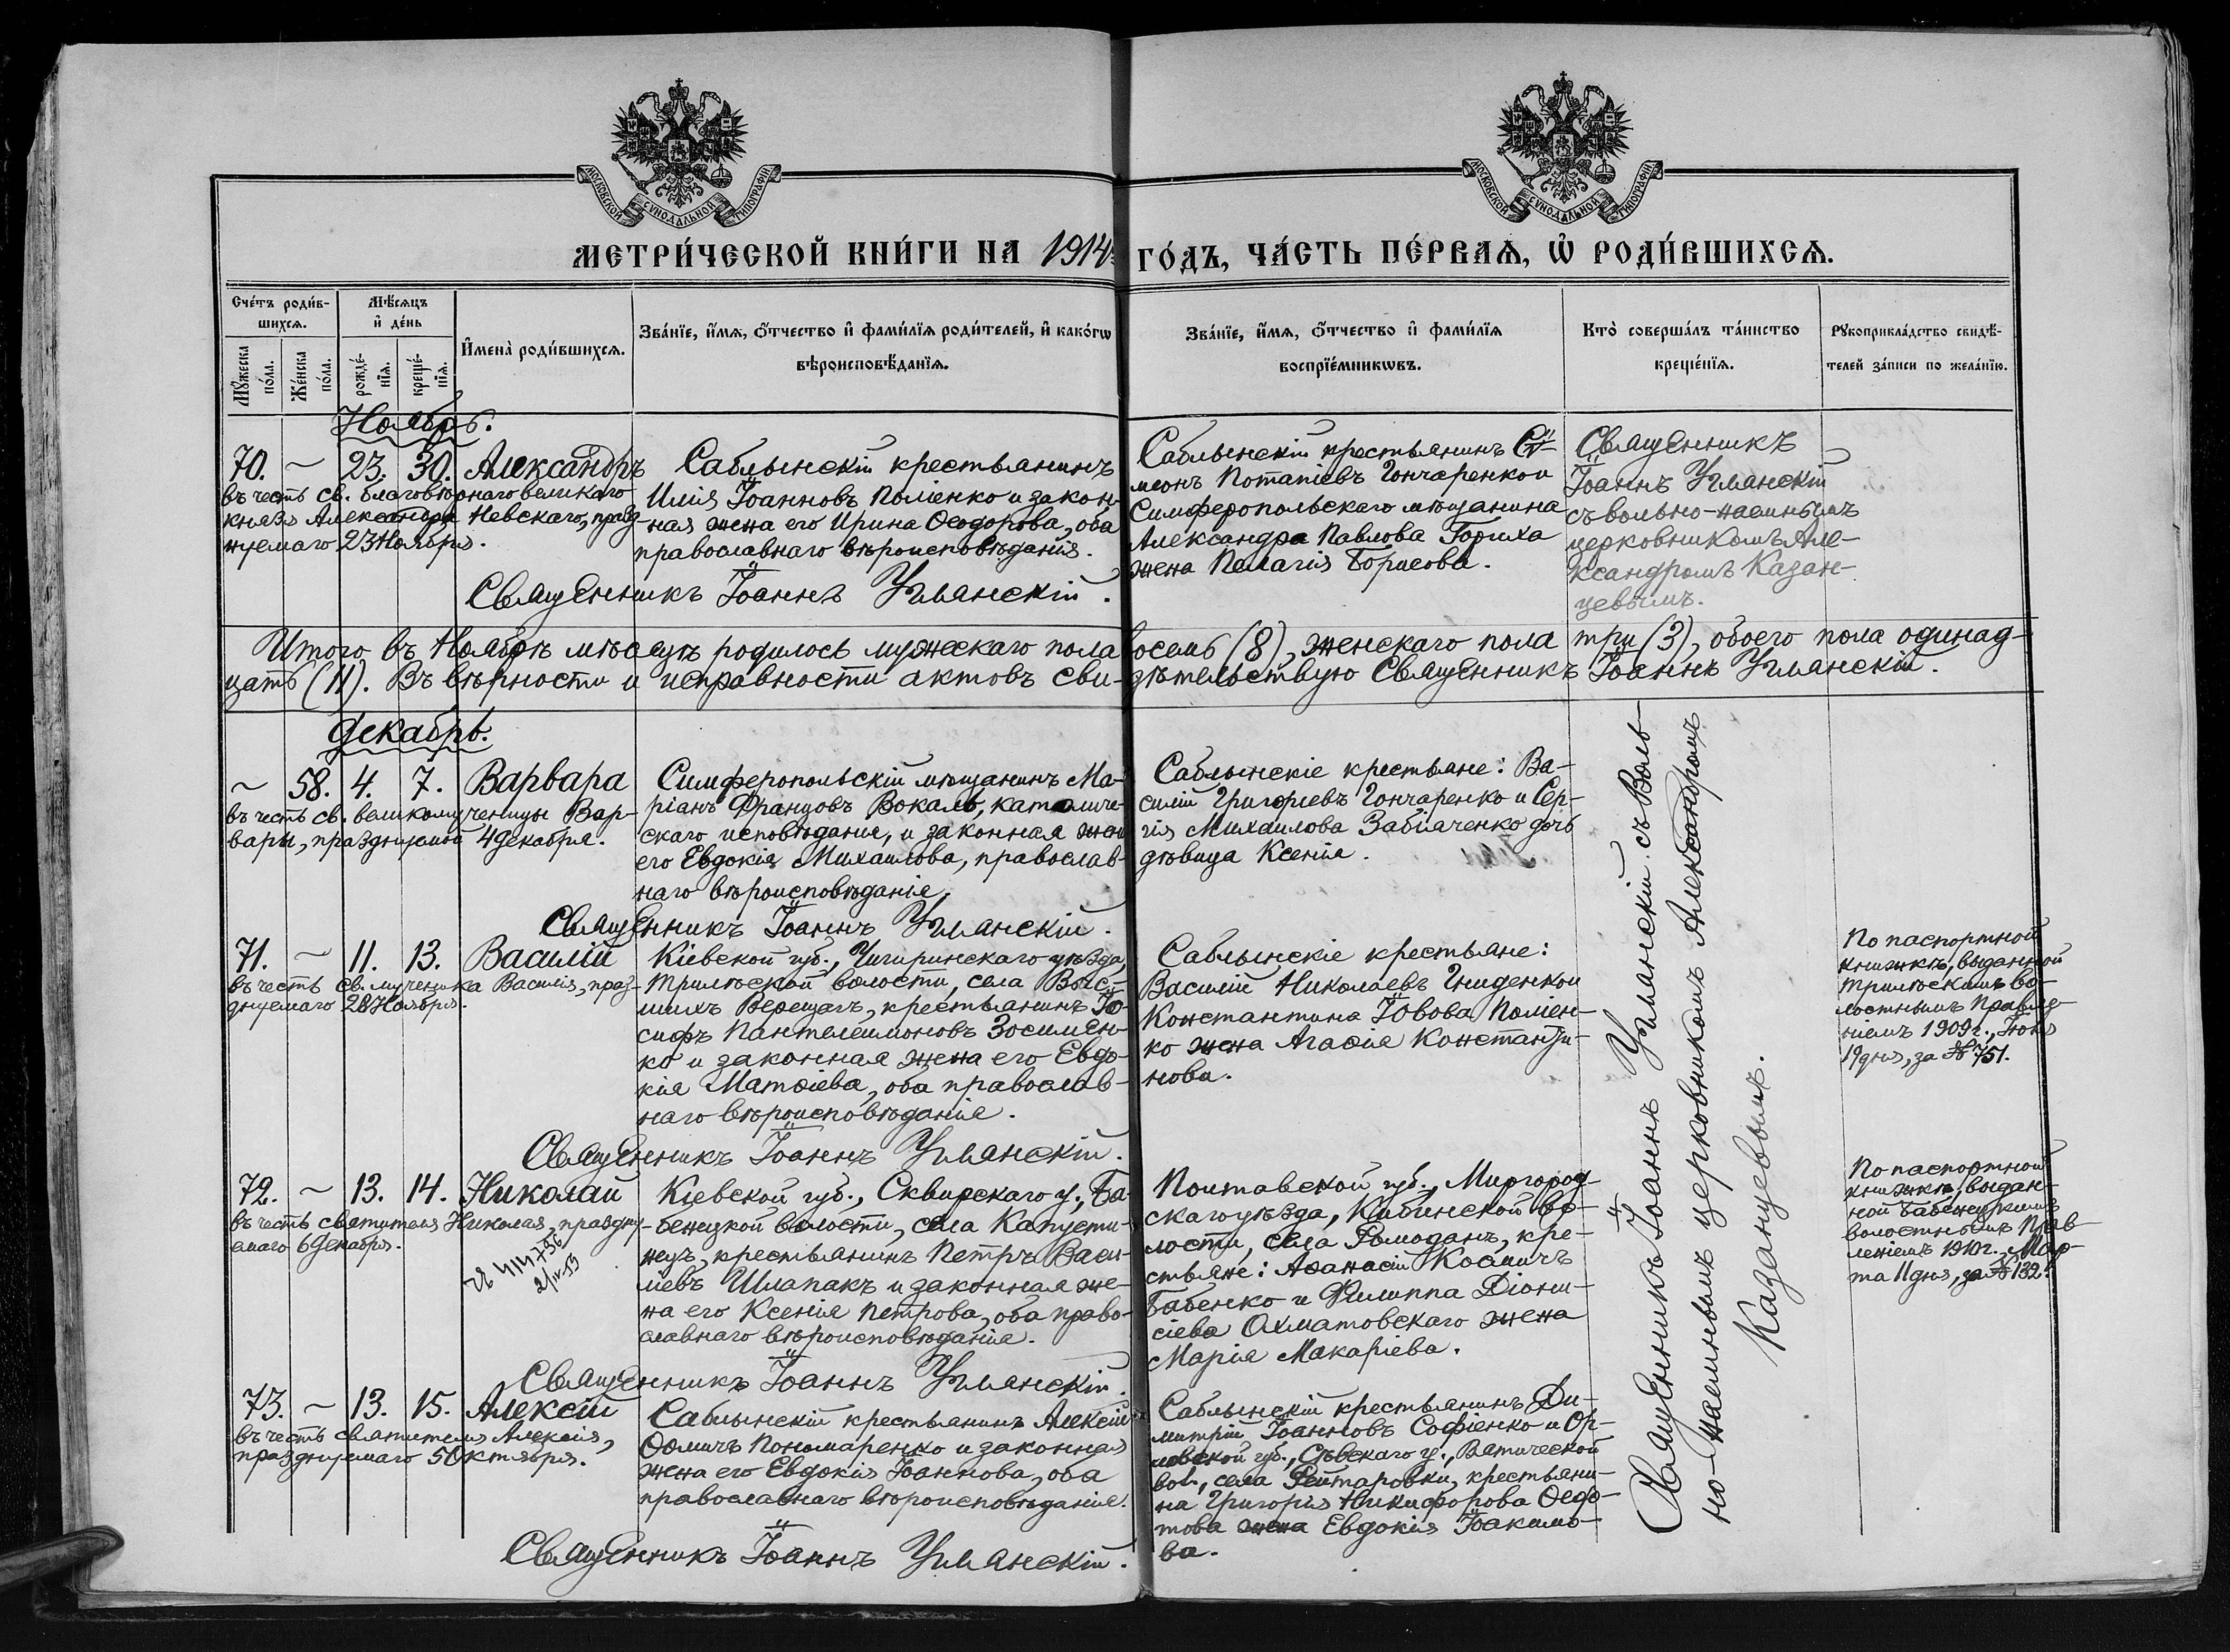 МОСКОВСКОЙ СѴНОДАЛЬНОЙ ТИПОГРАФІИ
МОСКОВСКОЙ СѴНОДАЛЬНОЙ ТИПОГРАФІИ
МЕТРИ́ЧЕСКОЙ КНИ́ГИ НА 1914 ГО́ДЪ, ЧА́СТЬ ПЕ́РВАѦ, Ѽ РОДИ́ВШИХСѦ.
Сче́тъ роди́в-
шихсѧ.
Мꙋ́жеска по́ла.
Же́нска по́ла.
Мѣ́сѧцъ
и҆ де́нь
рожде́-
нїѧ.
креще́-
нїѧ.
И҆мена̀ роди́вшихсѧ.
Зва́нїе, и҆́мѧ, ѻ҆́тчество и҆ фами́лїѧ роди́телей, и҆ како́гѡ
вѣроисповѣ́данїѧ.
Зва́нїе, и҆́мѧ, ѻ҆́тчество и҆ фами́лїѧ
воспрїе́мникѡвъ.
Кто̀ соверша́лъ та́инство
креще́нїѧ.
Рꙋкоприкла́дство свидѣ́-
телей за́писи по жела́нїю.
Ноябрь.
70. ~ 23. 30. Александръ
въ честь св. благовѣрнаго великаго
князя Александра Невскаго, празд-
нуемаго 23 Ноября.
Саблынскій крестьянинъ
Илія Іоанновъ Поліенко и закон-
ная жена его Ирина Ѳеодорова, оба
православнаго вѣроисповѣданія.
Священникъ Іоаннъ Углянскій.
Саблынскій крестьянинъ Сѵ-
меонъ Потапіевъ Гончаренко и
Симферопольскаго мѣщанина
Александра Павлова Гориха
жена Пелагія Борисова.
Священникъ
Іоаннъ Углянскій
съ вольно-наемнымъ
церковникомъ Але-
ксандромъ Казан-
цевымъ.
Итого въ Ноябрѣ мѣсяцѣ родилось мужескаго пола восемь (8), женскаго пола три (3), обоего пола одинад-
цать (11). Въ вѣрности и исправности актовъ сви-дѣтельствую Священникъ Іоаннъ Углянскій.
Декабрь.
~ 58. 4. 7. Варвара
въ честь св. великомученицы Вар-
вары, празднуемой 4 декабря.
Симферопольскій мѣщанинъ Ма-
ріанъ Францовъ Вокаль, католиче-
скаго исповѣданія, и законная жена
его Евдокія Михаилова, православ-
наго вѣроисповѣданія.
Священникъ Іоаннъ Углянскій.
Саблынскіе крестьяне: Ва-
силій Григоріевъ Гончаренко и Сер-
гія Михаилова Забіяченко дочь
дѣвица Ксенія.
71. ~ 11. 13. Василій
въ честь св. мученика Василія, праз-
днуемаго 28 Ноября.
Кіевской губ., Чигиринскаго уѣзда,
Трилѣской волости, села Выс-
шихъ Верещагъ, крестьянинъ Іо-
сифъ Пантелеимоновъ Зосимен-
ко и законная жена его Евдо-
кія Матѳіева, оба православ-
наго вѣроисповѣданія.
Священникъ Іоаннъ Углянскій.
Саблынскіе крестьяне:
Василій Николаевъ Гниденко и
Константина Іовова Поліен-
ко жена Агаѳія Константи-
нова.
По паспортной
книжкѣ, выданной
Трилѣскимъ во-
лостнымъ Правле-
ніемъ 1909 г., Іюня
19 дня, за № 751.
72. ~ 13. 14. Николай
въ честь святителя Николая, праздну-
емаго 6 Декабря.
Кіевской губ., Сквирскаго у., Ба-
бенецкой волости, села Капусти-
нецъ, крестьянинъ Петръ Васи-
ліевъ Шлапакъ и законная же-
на его Ксенія Петрова, оба право-
славнаго вѣроисповѣданія.
Священникъ Іоаннъ Углянскій.
Полтавской губ., Миргород-
скаго уѣзда, Кибинской во-
лости, села Ромоданъ, кре-
стьяне: Аѳанасій Косьмичъ
Бабенко и Филиппа Діони-
сіева Ахматовскаго жена
Марія Макаріева.
По паспортной
книжкѣ, выдан-
ной Бабенецкимъ
волостнымъ Прав-
леніемъ 1910 г., Мар-
та 11 дня, за № 132.
73. ~ 13. 15. Алексій
въ честь святителя Алексія,
празднуемаго 5 Октября.
Саблынскій крестьянинъ Алексій
Ѳомичъ Пономаренко и законная
жена его Евдокія Іоаннова, оба
православнаго вѣроисповѣданія.
Священникъ Іоаннъ Углянскій.
Саблынскій крестьянинъ Ди-
митрій Іоанновъ Софіенко и Ор-
ловской губ., Сѣвскаго у.,
вол., села Рейтаровки, крестьяни-
на Григорія Никифорова Ѳедо-
това жена Евдокія Іоакимо-
ва.
Священникъ Іоаннъ Углянскій съ Воль-
но-наемнымъ церковникомъ Александромъ
Казанцевымъ.